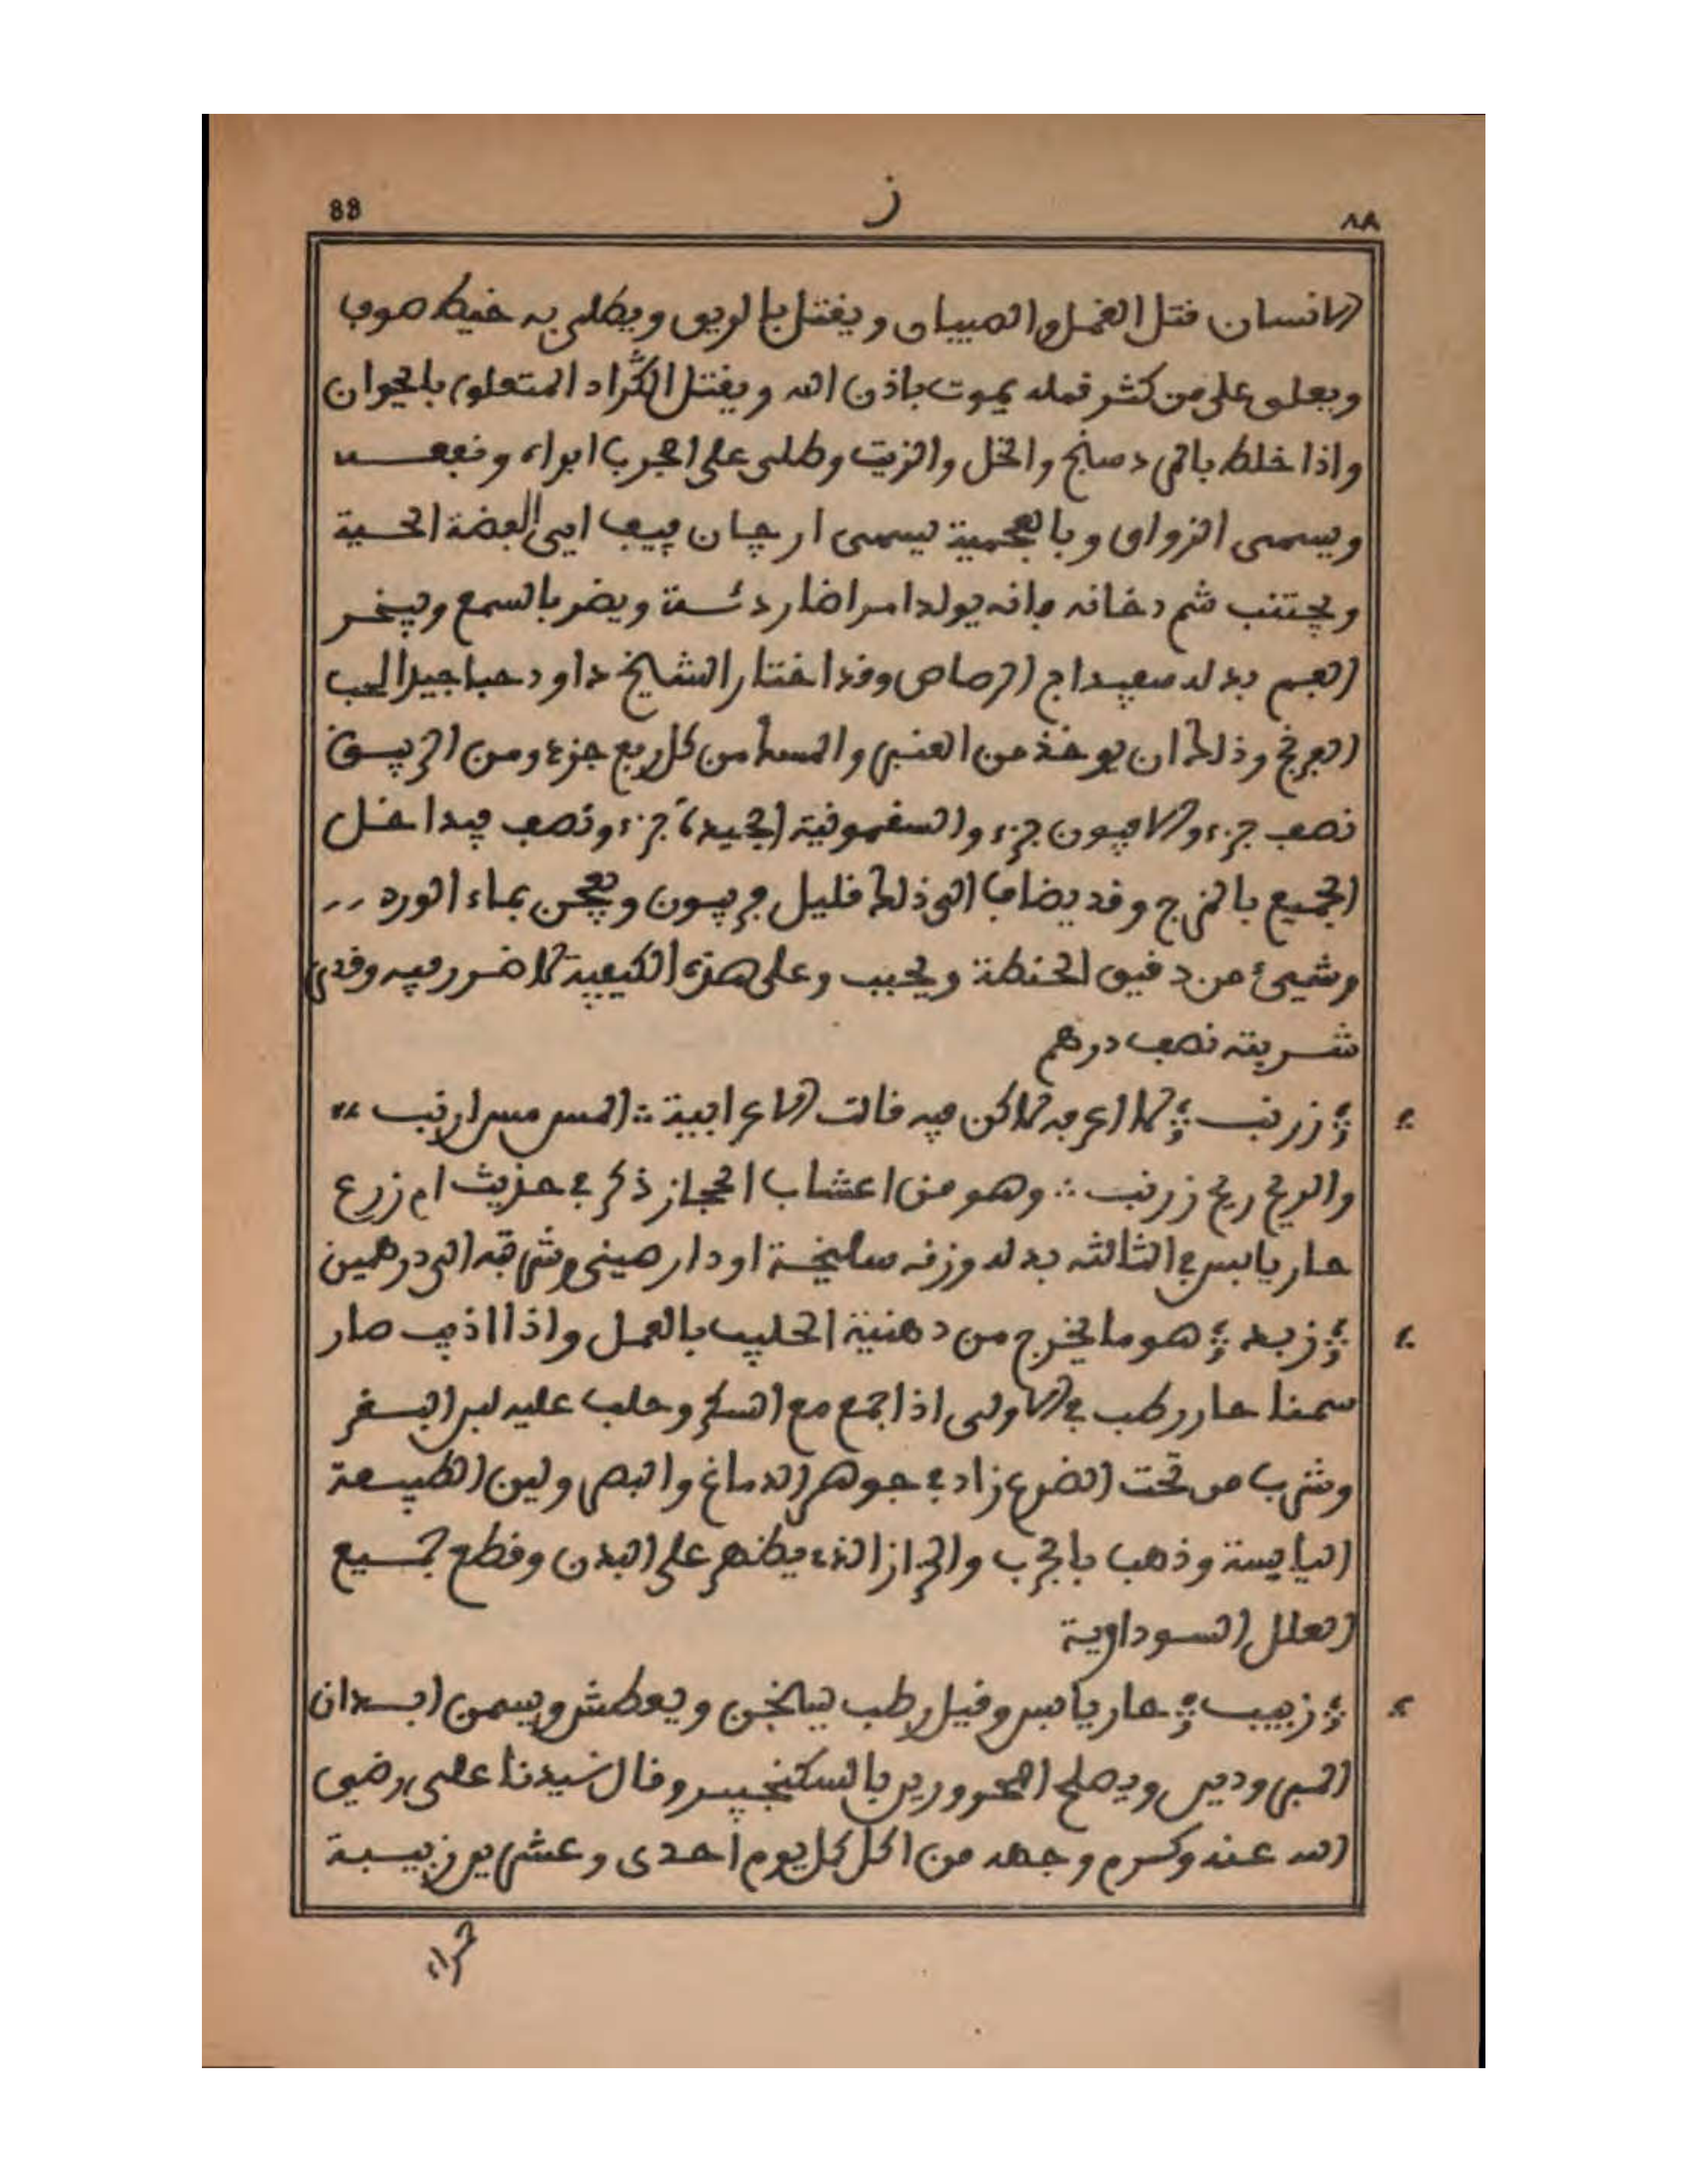 88 ز ٨٨
الانسان قتل القمل والصيبان ويقتل بالريق ويطلى به خيط صوف
ويعلق على من كثر قمله يموت باذن الله ويقتل الكُراد المتعلق بالحيوان
واذا خلط بالمردسنج والخل والزيت وطلى على الجرب ابراه ونفعه
ويسمى الزواق وبالعجمية يسمى ارجان بيب اي الفضة الحية
ويجتنب شم دخانه فانه يولد امراضا ردئة ويضر بالسمع ويبخر
الفم بدله سفيداج الرصاص وقد اختار الشيخ داود حبا جيدا لحب
الفرنج وذلك ان يوخذ من العنبر والمسك من كل ربع جزء ومن الزيبق
نصف جزء والافيون جزء والسقمونية الجيدة جزء ونصف فيداخل
الجميع بالمزج وقد يضاف الى ذلك قليل فربيون ويعجن بماء الورد
وشيئ من دقيق الحنطة ويحبب وعلى هذه الكيفية لا ضرر فيه وقدر
شربته نصف درهم
زرنب لا اعرفه لاكن فيه قالت الاعرابية المس مس ارنب
والريح ريح زرنب وهو من اعشاب الحجاز ذكر في حديث ام زرع
حار يابس في الثالثه بدله وزنه سليخة او دار صيني وشربته الى درهمين
زبد هو ما يخرج من دهنية الحليب بالعمل واذا اذيب صار
سمنا حار رطب في الاولى اذا جمع مع السكر وحلب عليه لبن البقر
وشرب من تحت الضرع زاد في جوهر الدماغ والبصر ولين الطبيعة
اليابسة وذهب بالجرب والحزاز الذي يظهر على البدن وقطع جميع
العلل السوداوية
زبيب حار يابس وقيل رطب يسخن ويعطش ويسمن ابدان
المبرودين ويصلح المحرورين بالسكنجبين وقال سيدنا علي رضي
الله عنه وكرم وجهه من اكل كل يوم احدى وعشرين زبيبة
حمراء